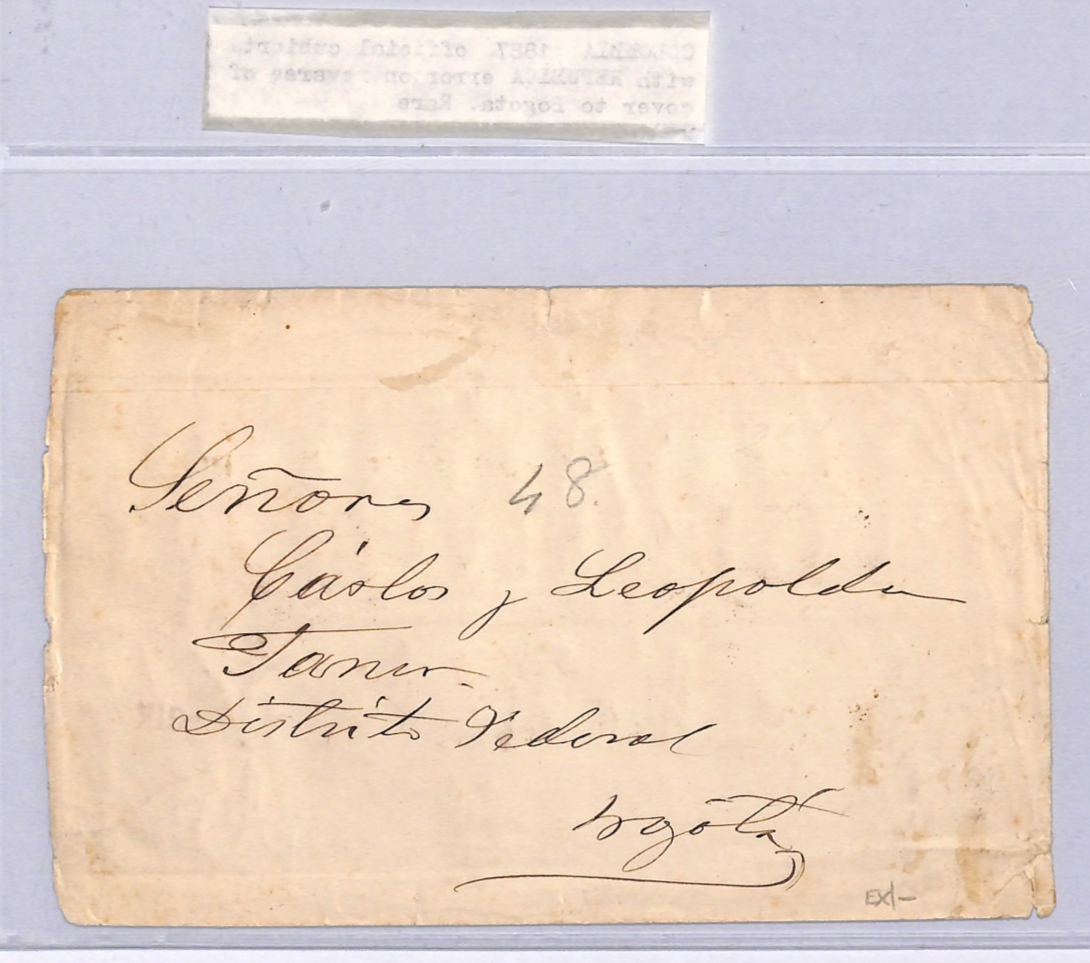 COLOMBIA 1887 official cubierta
with REPUBLICA error on reverse of
cover to Bogota. Rare
Señores 48.
Cárlos y Leopoldo
Distrito Federal
Bogotá
EX/-